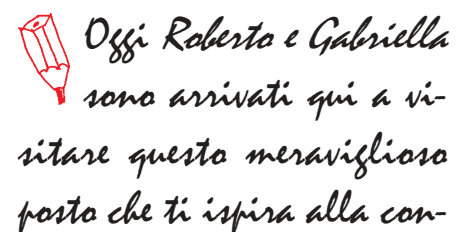 Oggi Roberto e Gabriella
sono arrivati qui a vi-
sitare questo meraviglioso
posto che ti ispira alla con-